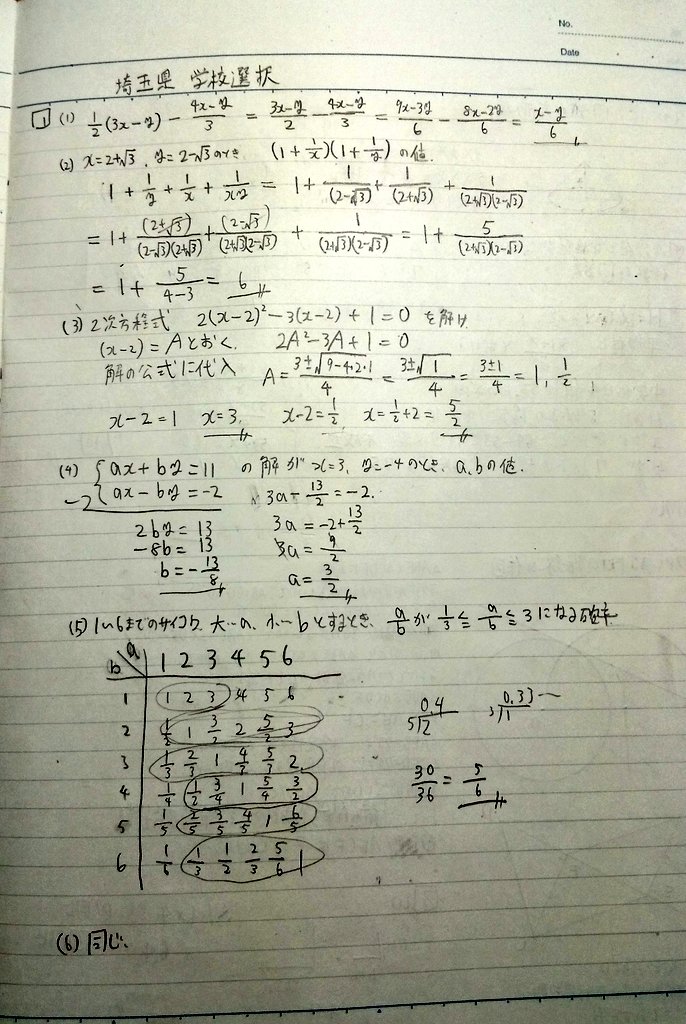 No.
Date
埼玉県 学校選択
1 (1) 1/2(3x-y) - (4x-y)/3 = (3x-y)/2 - (4x-y)/3 = (9x-3y)/6 - (8x-2y)/6 = (x-y)/6
(2) x=2+√3, y=2-√3のとき (1+1/x)(1+1/y) の値.
1 + 1/y + 1/x + 1/xy = 1 + 1/(2-√3) + 1/(2+√3) + 1/(2+√3)(2-√3)
= 1 + (2+√3)/(2-√3)(2+√3) + (2-√3)/(2+√3)(2-√3) + 1/(2+√3)(2-√3) = 1 + 5/(2+√3)(2-√3)
= 1 + 5/(4-3) = 6
(3) 2次方程式 2(x-2)²-3(x-2)+1=0 を解け
(x-2)=Aとおく. 2A²-3A+1=0
解の公式に代入 A = (3±√(9-4・2・1))/4 = (3±√1)/4 = (3±1)/4 = 1, 1/2
x-2=1 x=3, x-2=1/2 x=1/2+2=5/2
(4) { ax+by=11 の解が x=3, y=-4のとき, a,bの値.
-) ax-by=-2
2by=13
-8b=13
b=-13/8
3a-13/2=-2.
3a=-2+13/2
3a=9/2
a=3/2
(5) 1〜6までのサイコロ, 大…a, 小…bとするとき, a/bが 1/3≦a/b≦3になる確率
b\a 1 2 3 4 5 6
1 1 2 3 4 5 6
2 1/2 1 3/2 2 5/2 3
3 1/3 2/3 1 4/3 5/3 2
4 1/4 1/2 3/4 1 5/4 3/2
5 1/5 2/5 3/5 4/5 1 6/5
6 1/6 1/3 1/2 2/3 5/6 1
0.4
5)2
0.33…
3)1
30/36 = 5/6
(6) 同じ.